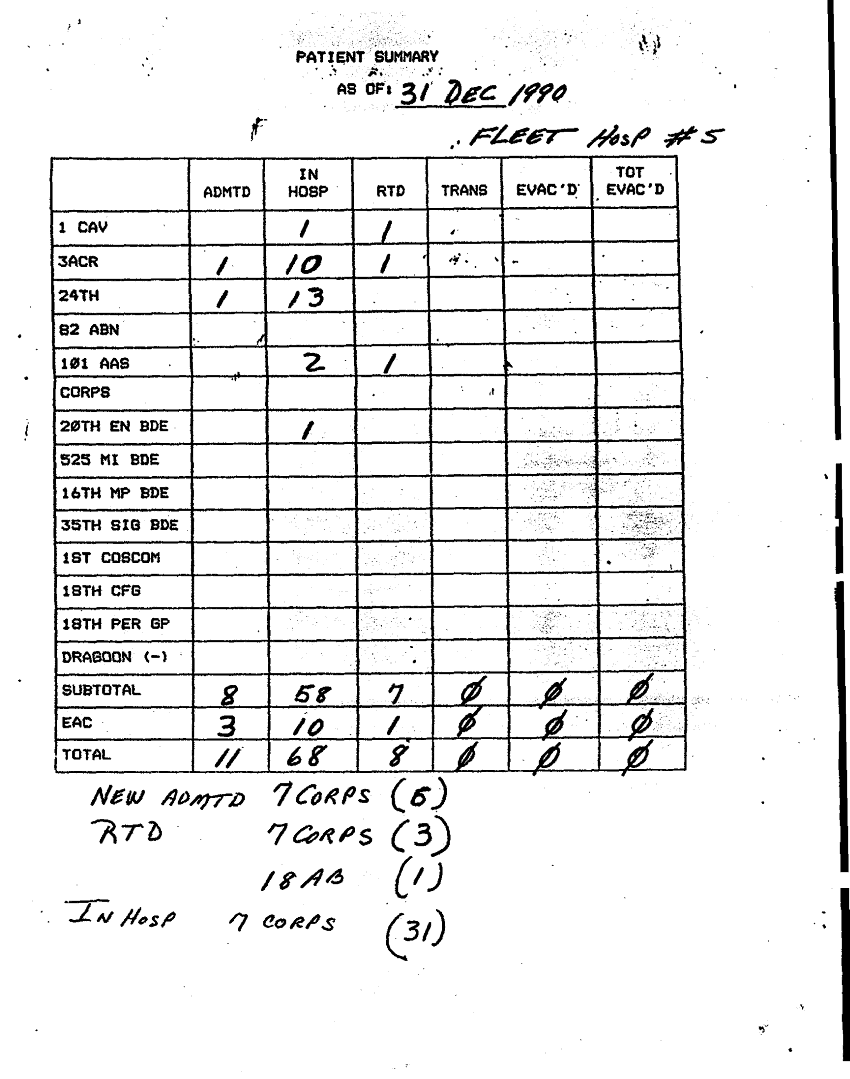 PATIENT SUMMARY
AS OF: 31 DEC 1990
FLEET HOSP #5
ADMTD IN HOSP RTD TRANS EVAC'D TOT EVAC'D
1 CAV 1 1
3ACR 1 10 1
24TH 1 13
82 ABN
101 AAS 2 1
CORPS
20TH EN BDE 1
525 MI BDE
16TH MP BDE
35TH SIG BDE
1ST COSCOM
18TH CFG
18TH PER GP
DRAGOON (-)
SUBTOTAL 8 58 7 Ø Ø Ø
EAC 3 10 1 Ø Ø Ø
TOTAL 11 68 8 Ø Ø Ø
NEW ADMTD 7 CORPS (6)
RTD 7 CORPS (3)
18 AB (1)
IN HOSP 7 CORPS (31)